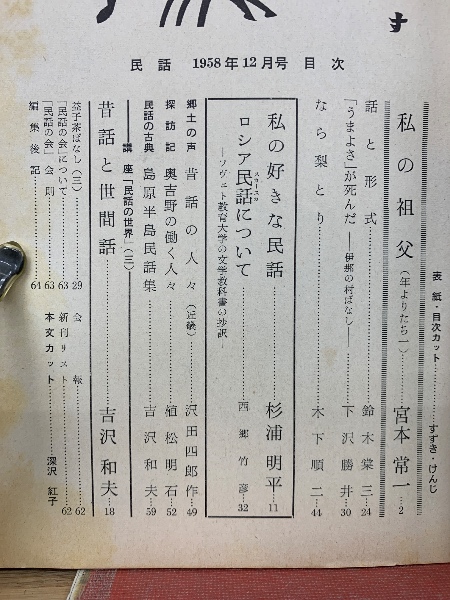 す
民話 1958年12月号 目次
表紙・目次カット……すずき・けんじ
私の祖父(年よりたち一)……宮本常一…2
話と形式……鈴木棠三…24
「うまよさ」が死んだ―伊那の村ばなし―……下沢勝井…30
なら梨とり……木下順二…44
私の好きな民話……杉浦明平…11
ロシア民話について……西郷竹彦…32
スカースカ
―ソヴェト教育大学の文学教科書の抄訳―
郷土の声 昔話の人々(近畿)……沢田四郎作…49
探訪記 奥吉野の働く人々……植松明石…52
民話の古典 島原半島民話集……吉沢和夫…59
講座「民話の世界」(三)
昔話と世間話……吉沢和夫…18
益子茶ばなし(三)……29
「民話の会」について……63
「民話の会」会則……63
編集後記……64
会報……62
新刊リスト……62
本文カット……深沢紅子